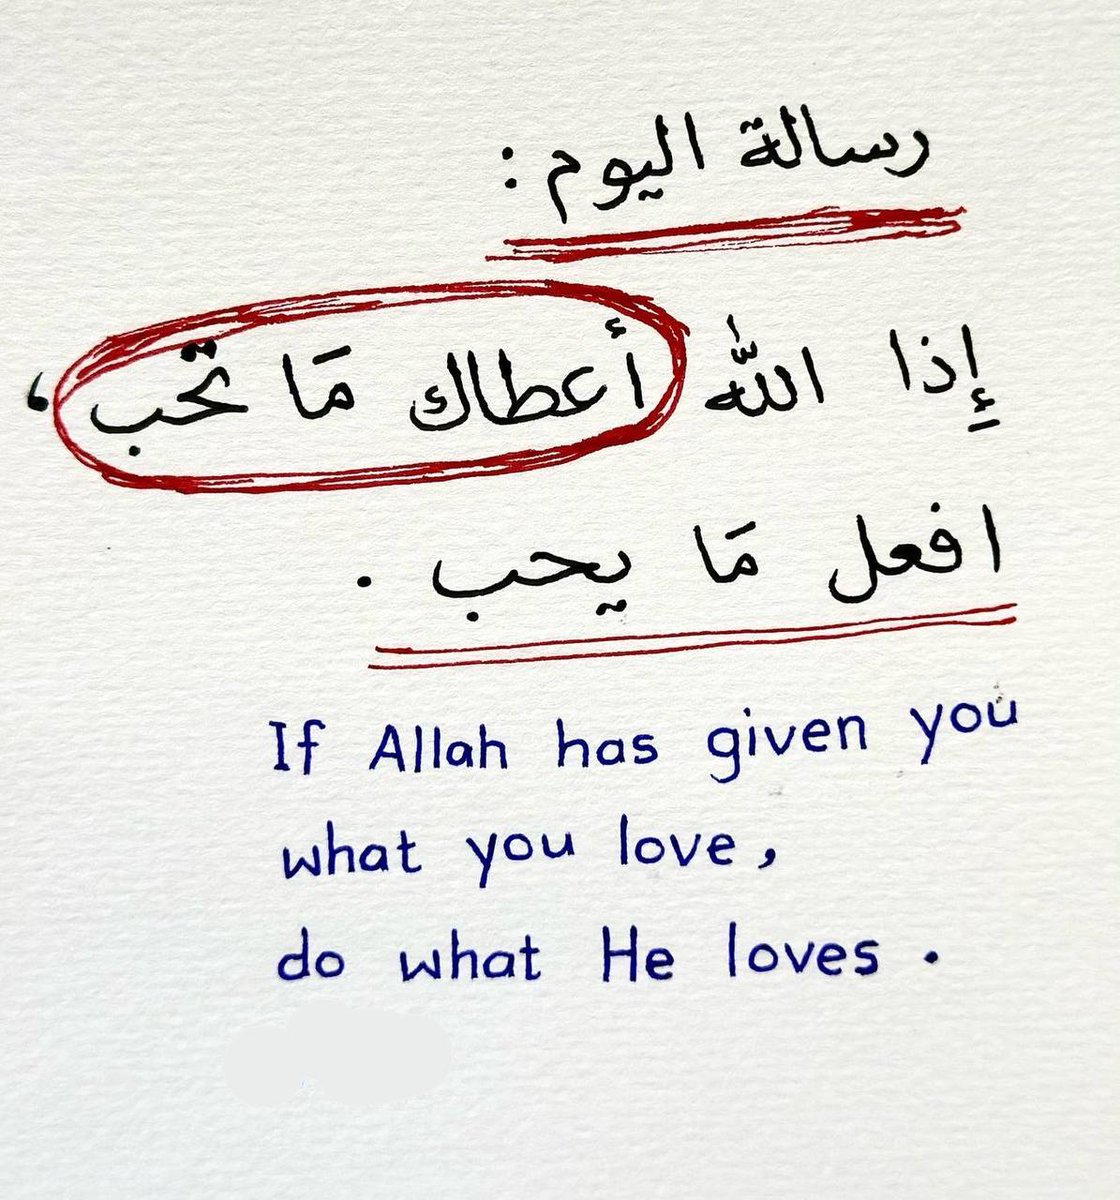 رسالة اليوم :
إِذا اللّٰه أعطاك مَا تحب ،
افعل مَا يحب .
If Allah has given you
what you love ,
do what He loves .